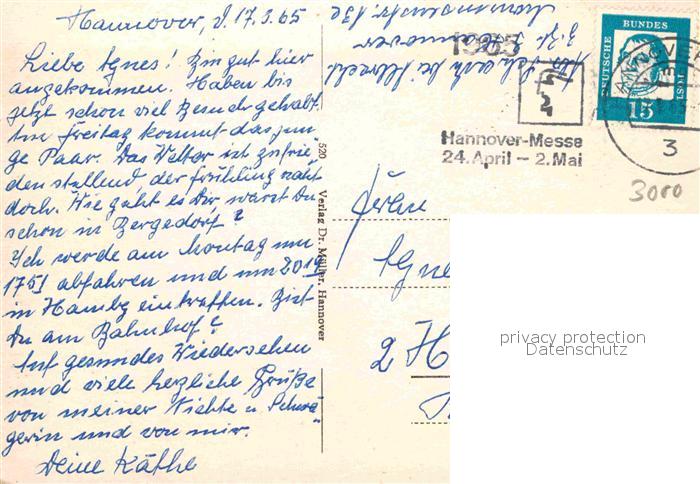 Hannover, d. 17.3.65
Liebe Agnes! Bin gut hier
angekommen. Haben bis
jetzt schon viel Besuch gehabt.
Am Freitag kommt das jun-
ge Paar. Das Wetter ist zufrie
den stellend, der Frühling naht
doch. Wie geht es Dir, warst Du
schon in Bergedorf?
Ich werde am Montag um
1751 abfahren und um 2019
in Hambg eintreffen. Bist
Du am Bahnhof?
Auf gesundes Wiedersehen
und viele herzliche Grüße
von meiner Nichte u. Schwä-
gerin und von mir.
Deine Käthe
Hannover
z. Zt.
520 Verlag Dr. Müller, Hannover
1965
Hannover-Messe
24. April – 2. Mai
DEUTSCHE BUNDESPOST
15
HANNOVER
3
3000
Frau
Agne
2 H
privacy protection
Datenschutz